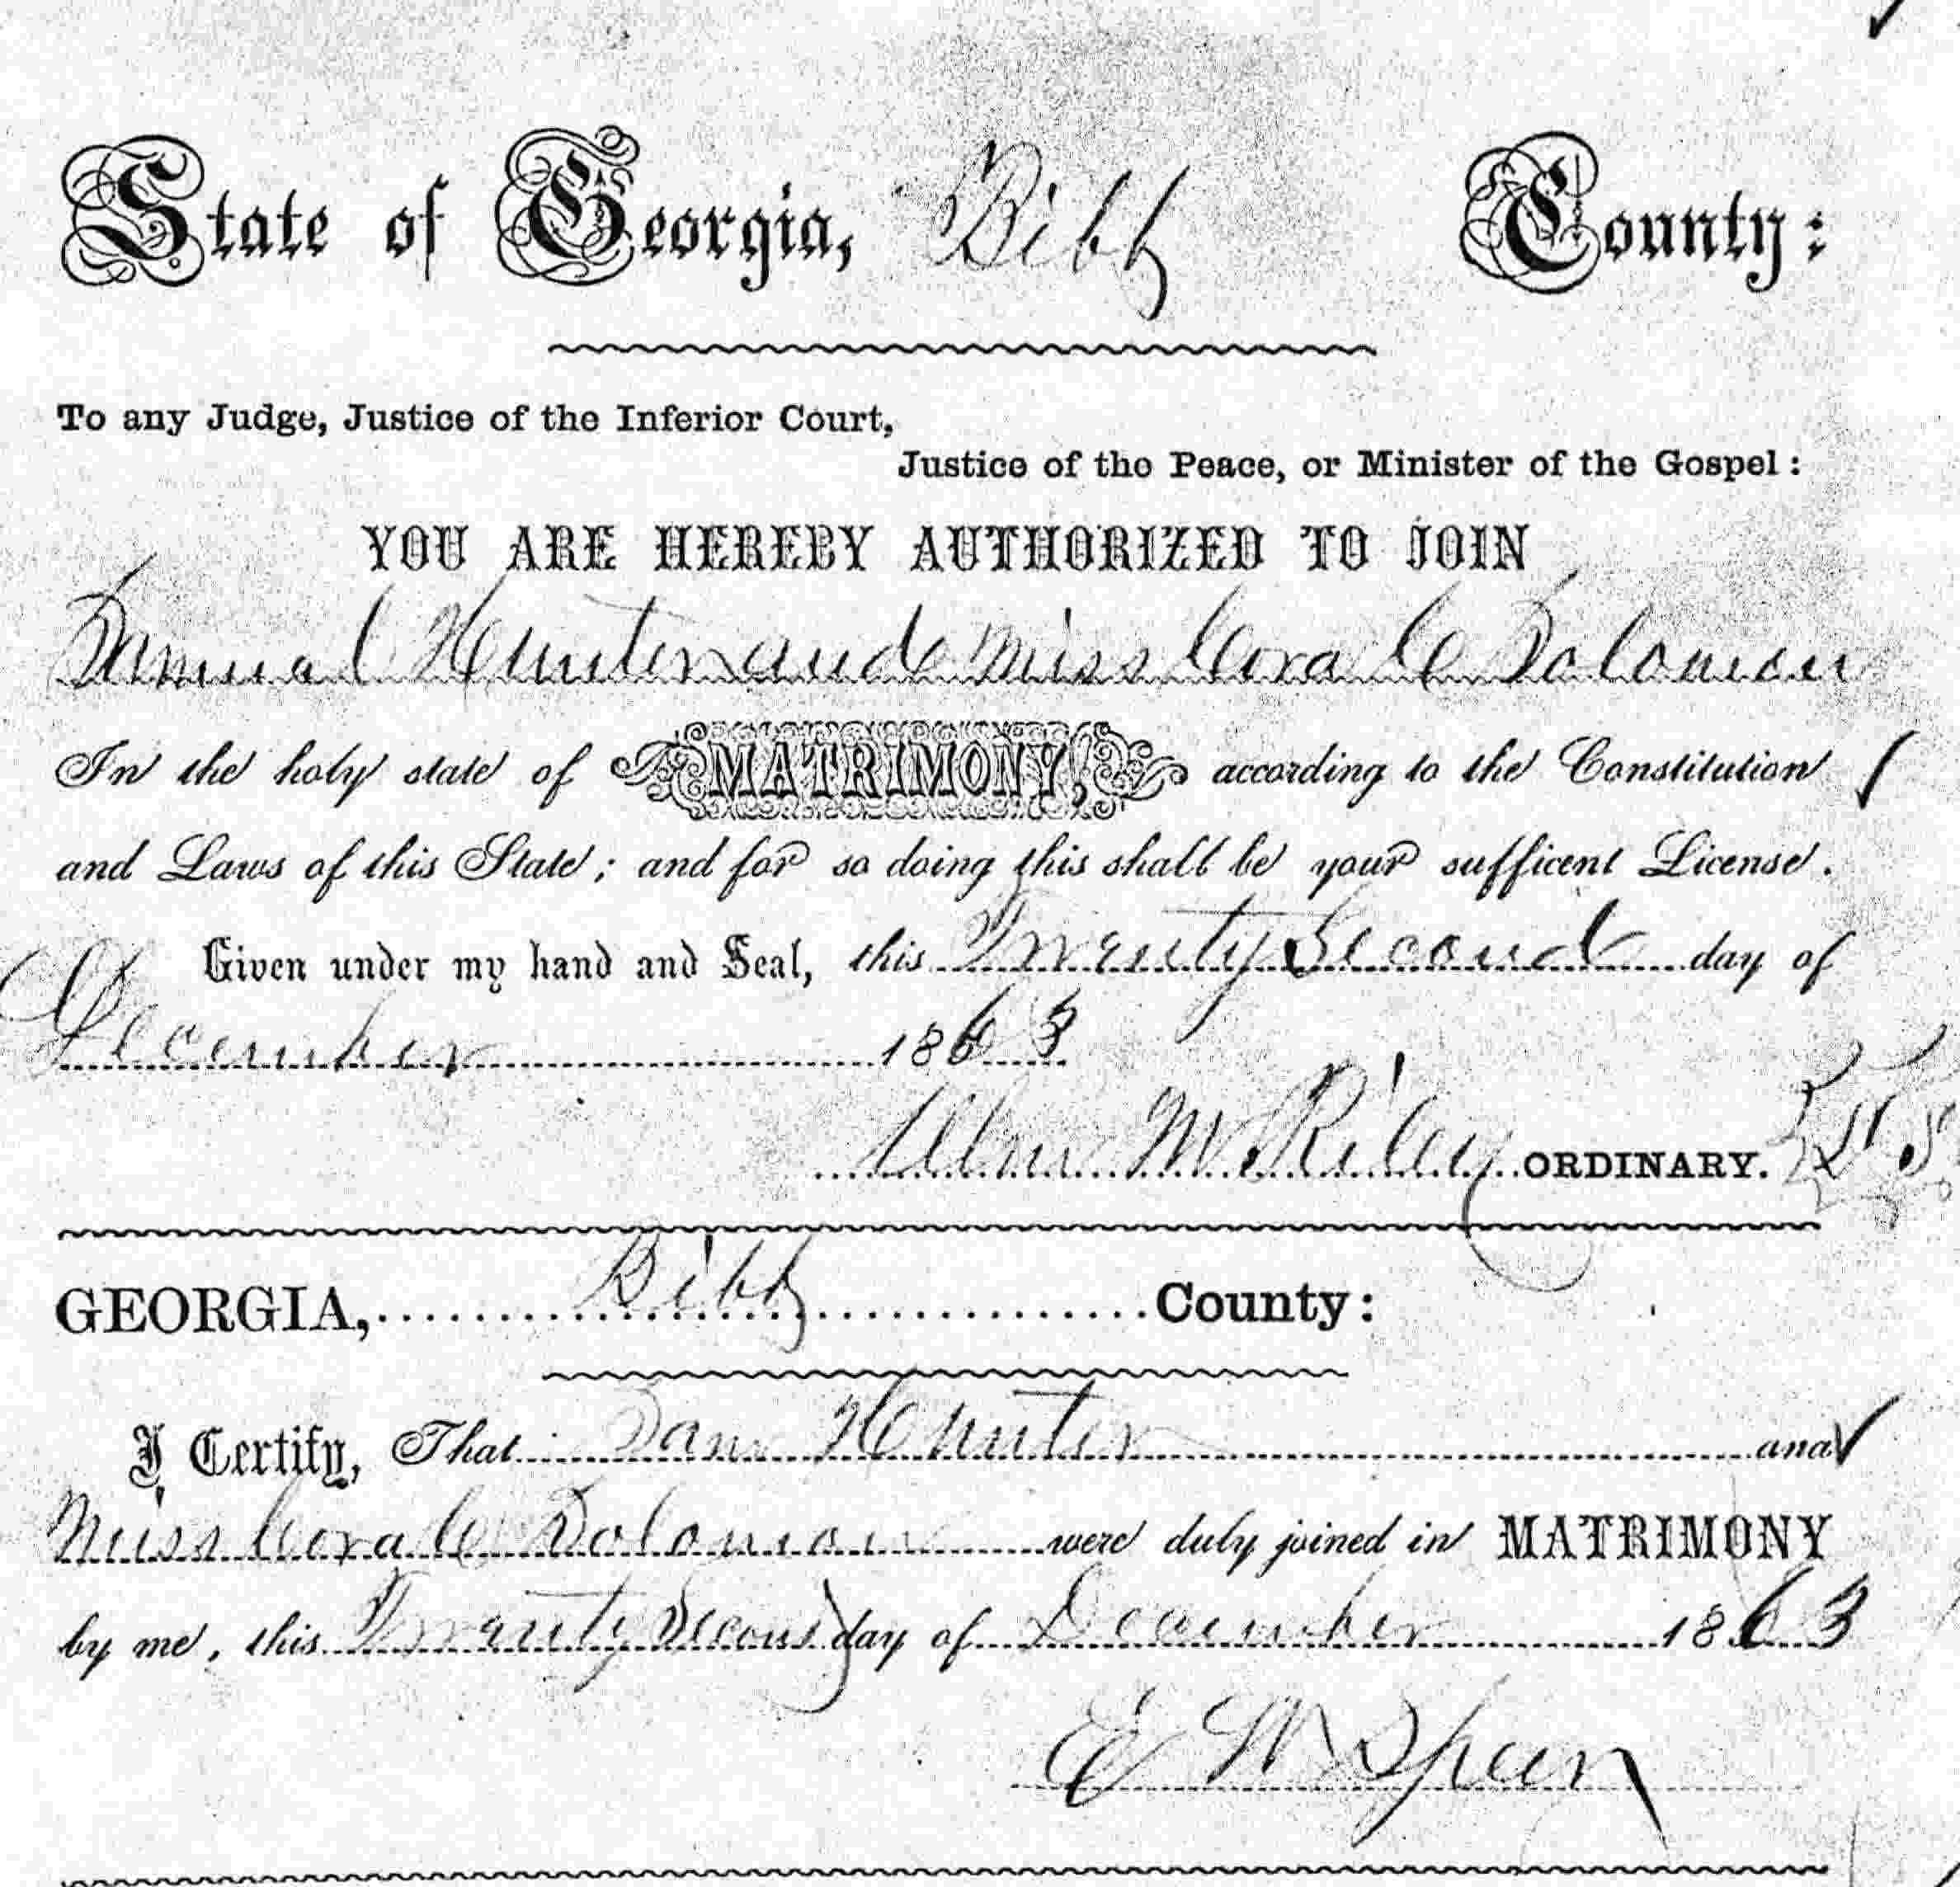 State of Georgia, Bibb County:
To any Judge, Justice of the Inferior Court,
Justice of the Peace, or Minister of the Gospel:
YOU ARE HEREBY AUTHORIZED TO JOIN
Samual Hunter and Miss Cora C Solomon
In the holy state of MATRIMONY, according to the Constitution
and Laws of this State; and for so doing this shall be your sufficent License.
Given under my hand and Seal, this Twenty Second day of
December 1863
Wm M Riley ORDINARY. L S
GEORGIA, Bibb County:
I Certify, That Sam Hunter and
Miss Cora C Solomon were duly joined in MATRIMONY
by me, this Twenty Second day of December 1863
E W Speer